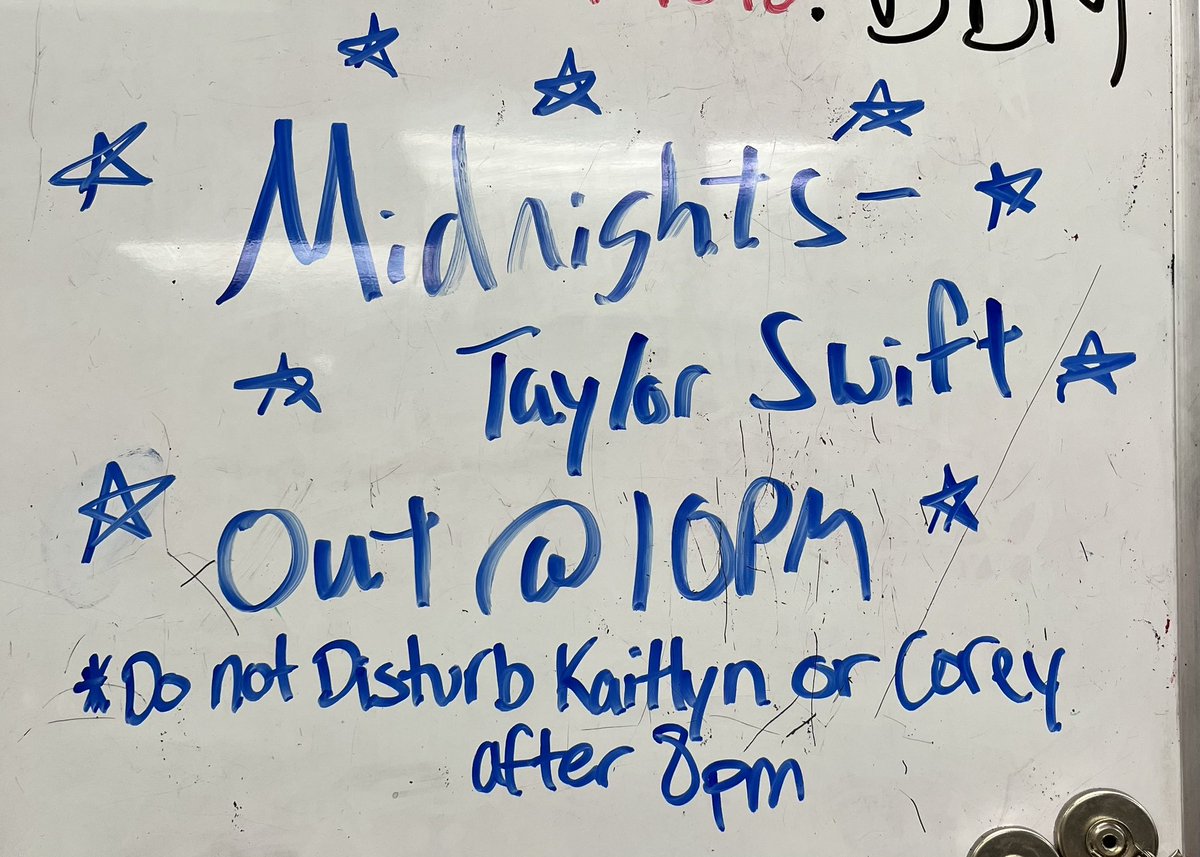 Midnights -
Taylor Swift
Out @ 10PM
*Do not Disturb Kaitlyn or Corey
after 8pm